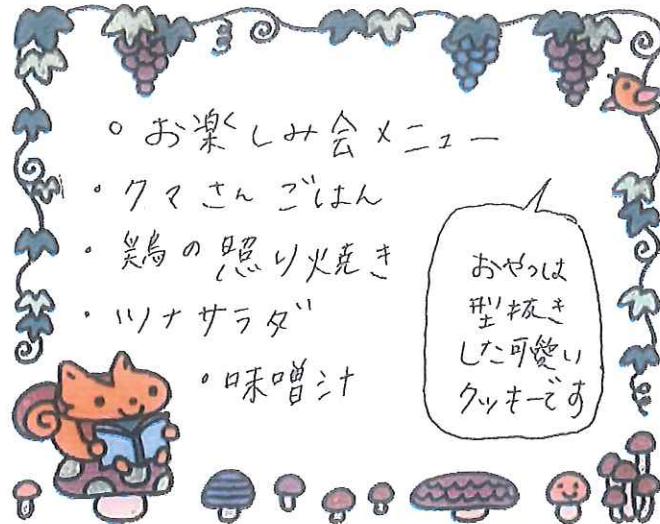 ○ お楽しみ会メニュー
・クマさんごはん
・鶏の照り焼き
・ツナサラダ
・味噌汁
おやつは
型抜き
した可愛い
クッキーです